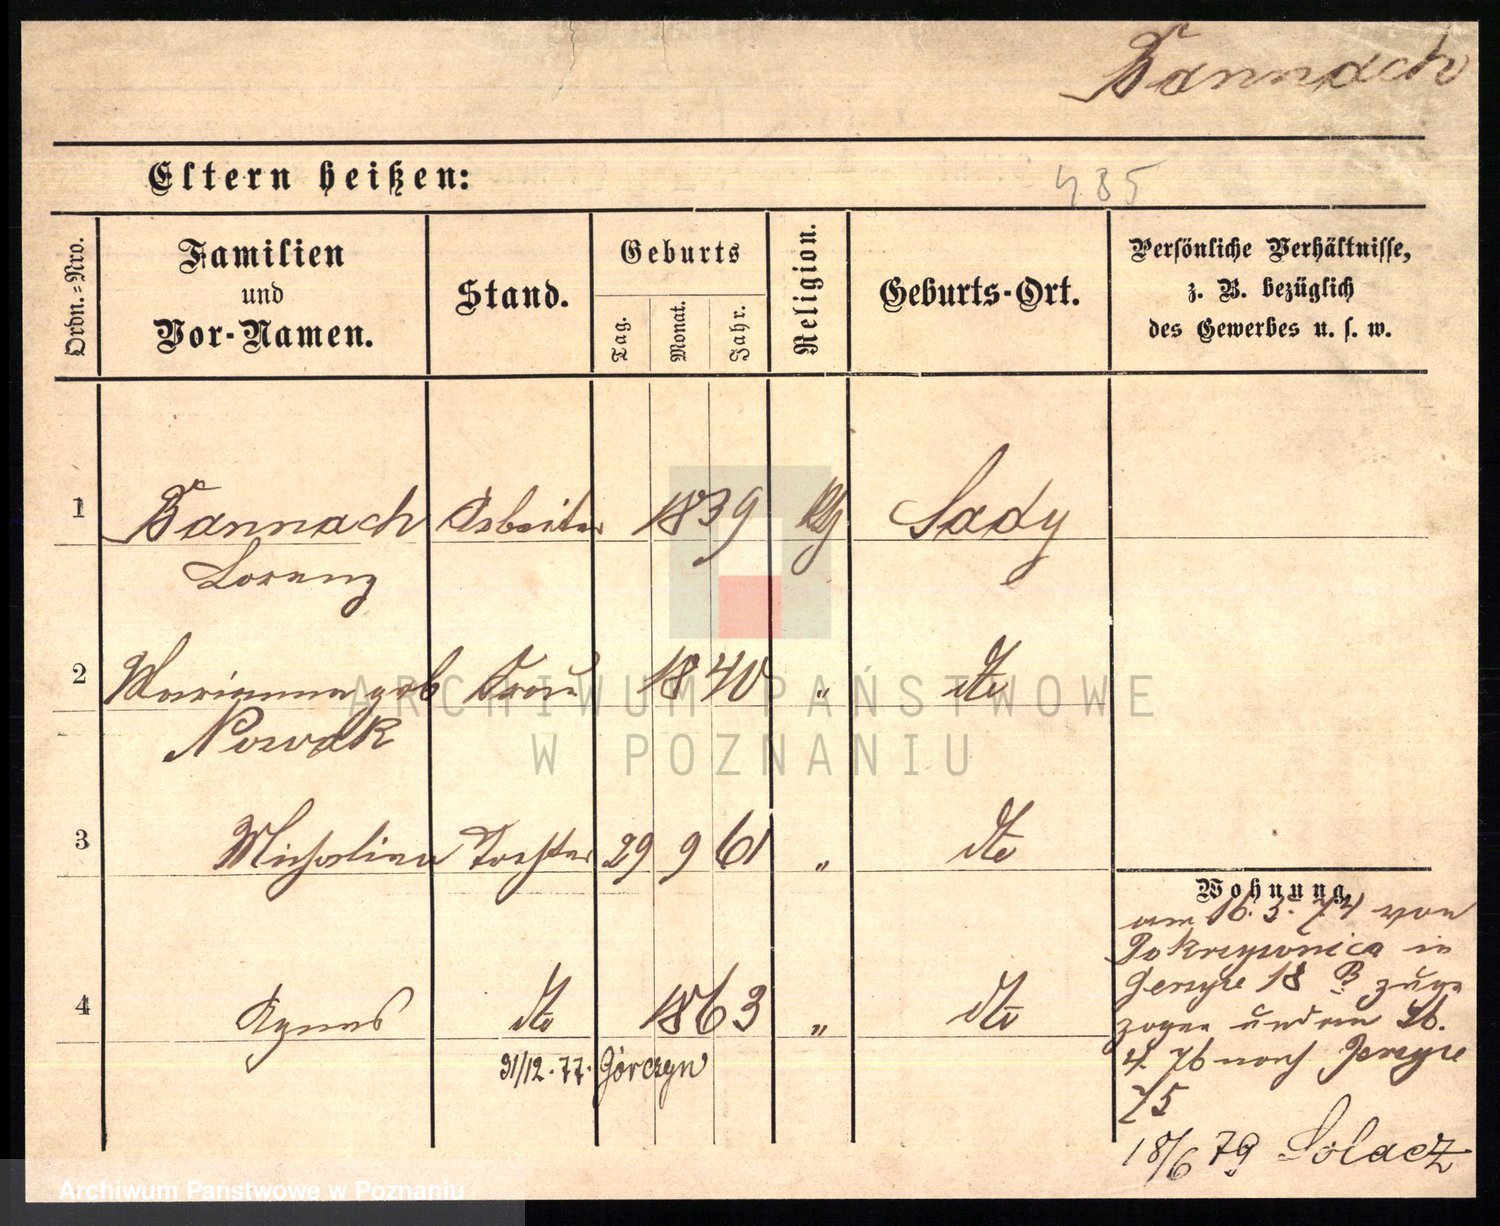 Bannach
Eltern heißen:
485
Ordn.=Nro.
Familien
und
Vor-Namen.
Stand.
Geburts
Tag.
Monat.
Jahr.
Religion.
Geburts-Ort.
Persönliche Verhältnisse,
z. B. bezüglich
des Gewerbes u. s. w.
1 Bannach Arbeiter 1839 Sady
Lorenz
2 Marianna geb Frau 1840 " dto
Nowak
3 Michalina Tochter 29 9 61 " dto
4 Agnes dto 1863 " dto
31/12. 77. Górczyn
Wohnung.
am 16. 3. 74 von
Pokrzywnica in
Jerzyce 18 B zuge
zogen und am 26.
4. 76 nach Jerzyce
75
18/6 79 Solacz
ARCHIWUM PAŃSTWOWE
W POZNANIU
Archiwum Państwowe w Poznaniu